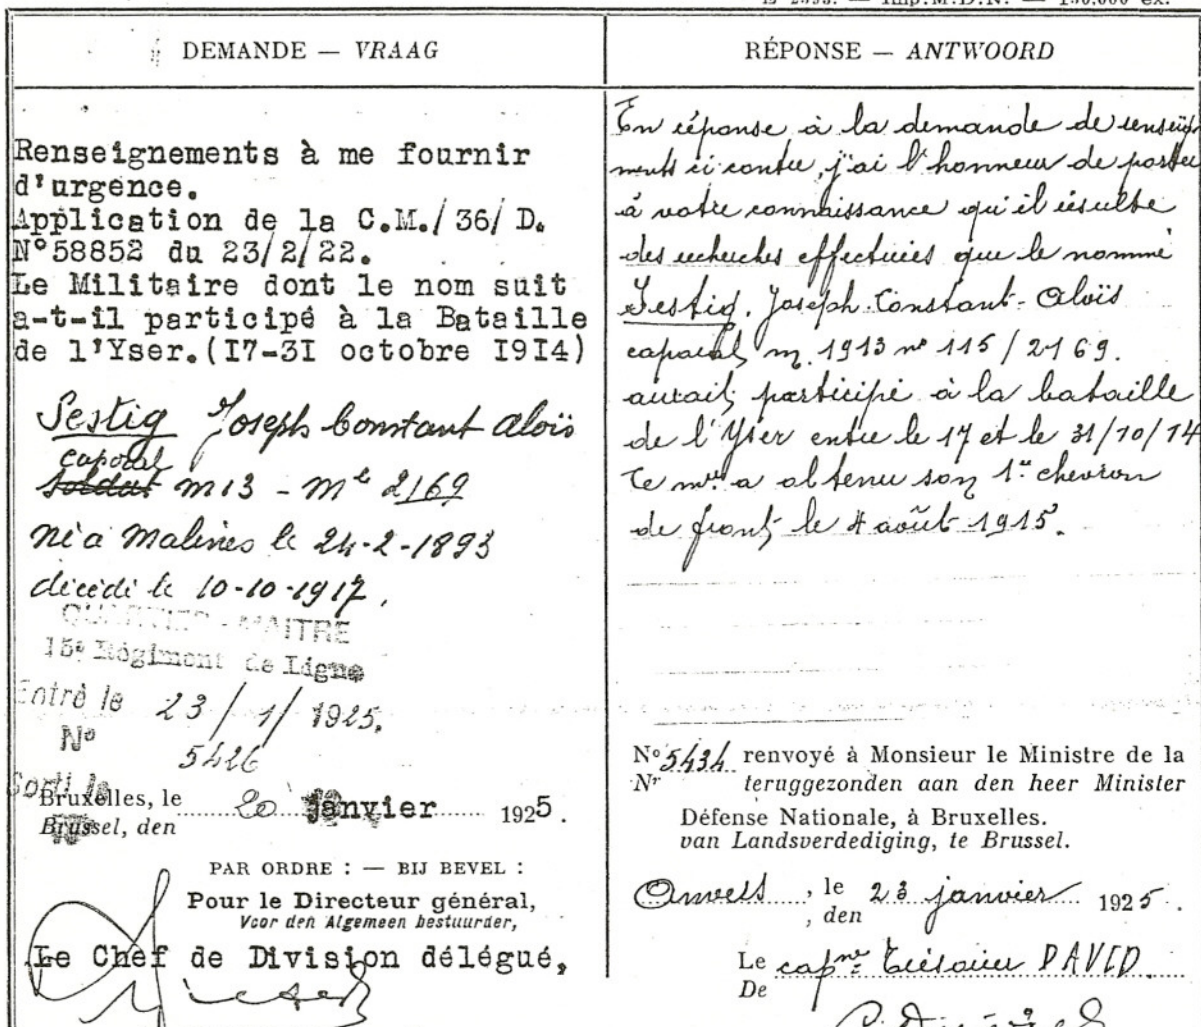 E 2393. — Imp. M.D.N. — 150,000 ex.
DEMANDE — VRAAG
Renseignements à me fournir
d'urgence.
Application de la C.M./36/D.
N°58852 du 23/2/22.
Le Militaire dont le nom suit
a-t-il participé à la Bataille
de l'Yser.(I7-3I octobre I9I4)
Sestig Joseph Constant Aloïs
caporal
soldat m13 - mle 2169
né à Malines le 24-2-1893
décédé le 10-10-1917.
QUARTIER-MAITRE
15e Régiment de Ligne
Entré le 23/1/1925.
N° 5426
Sorti le
Bruxelles, le 20 janvier 1925.
Brussel, den
PAR ORDRE : — BIJ BEVEL :
Pour le Directeur général,
Voor den Algemeen bestuurder,
Le Chef de Division délégué,
RÉPONSE — ANTWOORD
En réponse à la demande de renseigne
ments ci contre, j'ai l'honneur de porter
à votre connaissance qu'il résulte
des recherches effectuées que le nommé
Sestig. Joseph. Constant-Aloïs
caporal m. 1913 n° 115/2169.
aurait participé à la bataille
de l'Yser entre le 17 et le 31/10/14
Ce mre a obtenu son 1er chevron
de front le 4 août 1915.
N° 5434 renvoyé à Monsieur le Ministre de la
Nr teruggezonden aan den heer Minister
Défense Nationale, à Bruxelles.
van Landsverdediging, te Brussel.
Anvers, le 23 janvier 1925.
, den
Le capne Trésorier DAVID.
De